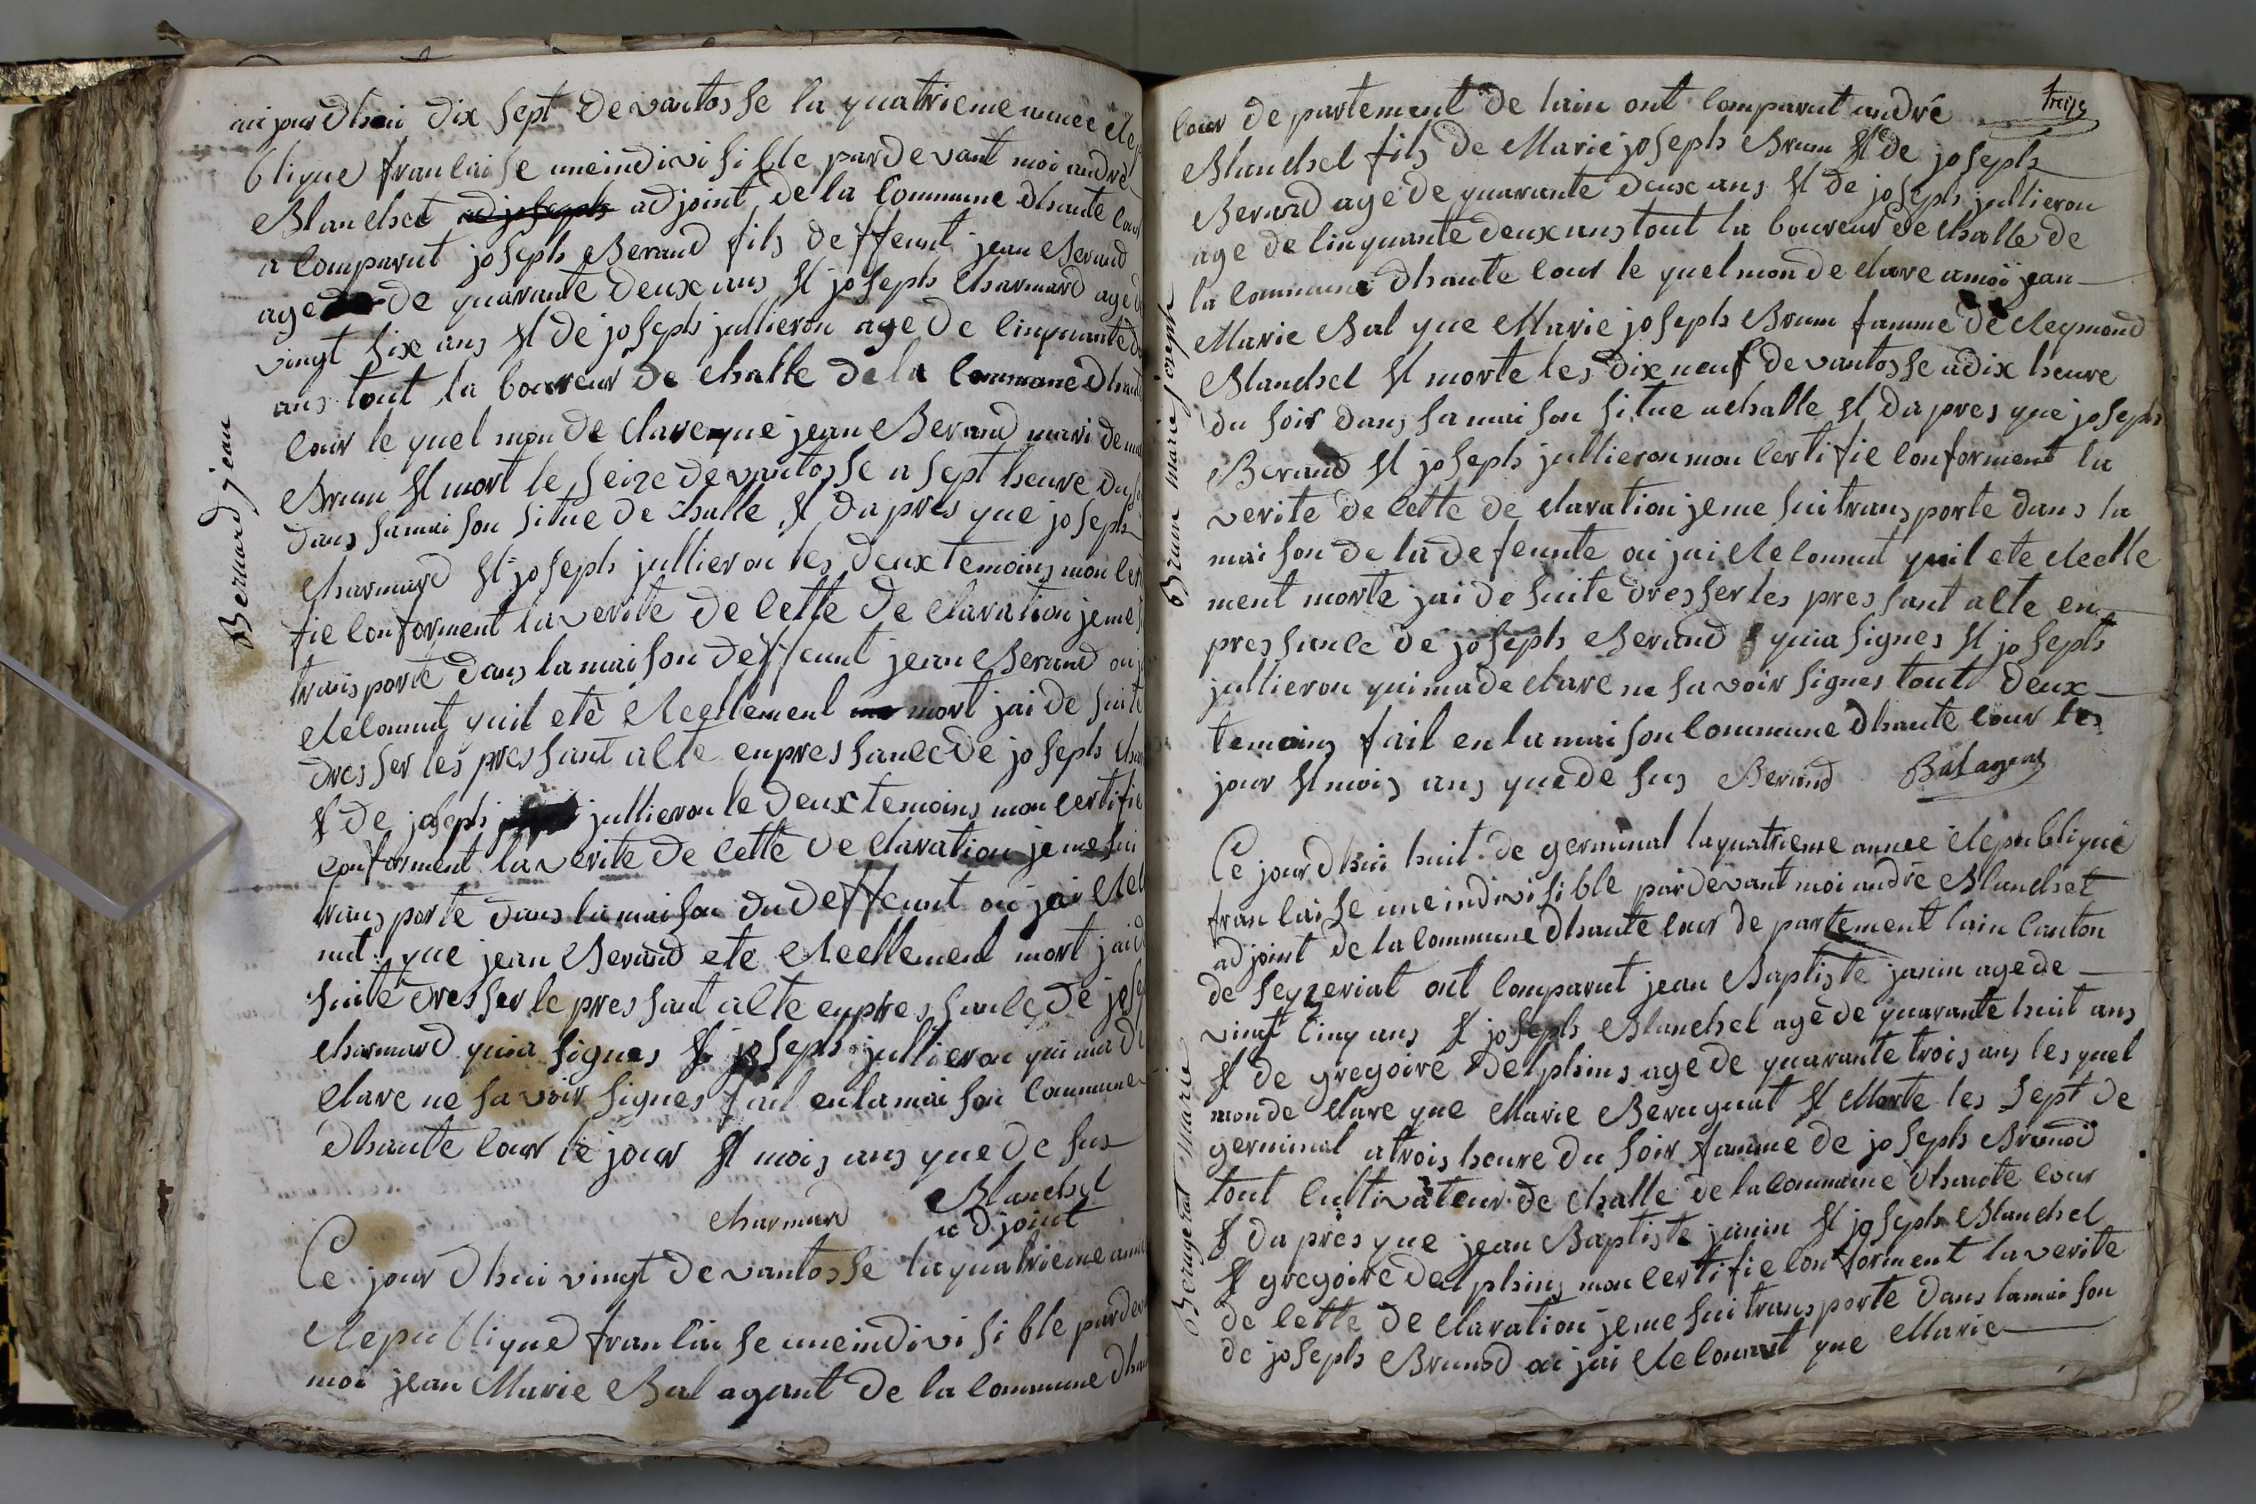 aujourdhui dix sept de vantosse la quatrieme annee Rep
blique franςaise une indivisible par devant moi andré
Blanchet adjoint de la Commune dhaute Cour
a Comparut joseph Beraud fils deffeunt jean Beraud
age de quarante deux ans et joseph Charmard age de
vingt sixe ans et de joseph jullieron age de Cinquante de
ans tout laboureur de Challe de la Commune dhaute
Cour le quel mon de Clare que jean Beraud mari de ma
Brum et mort le seize de vantosse a sept heure du so
dans sa maison situe de Challe et dapres que joseph
Charmard et joseph jullieron les deux temoins mon Certi
fie Conforment la verite de Cette de Claration je me s
transporte dans la maison deffeunt jean Beraud ou j
Reconnut quil ete Reellement mort jai de suite
dresser les pressant alte en pressance de joseph Char
et de joseph jullieron le deux temoins mon Certifie
Conforment la verite de Cette de Claration je me sui
transporte dans la maison du deffeunt ou jai Reco
nut que jean Beraud ete Reellement mort jai d
suite dresser le pressant alte en pressance de jose
Charmard quia signes et joseph jullieron qui ma de
Clare ne savoir signes fail en la maison Commune
dhaute Cour le jour et mois ans que de sus
Charmard Blanchet
adjoint
Ce jour dhui vingt de vantosse la quatrieme anne
Republique franςaise une indivisible par deva
moi jean Marie Bal agant de la Commune dhau
Berard jean
treize
Cour de partement de lain ont Comparut andré
Blanchet fils de Marie joseph Brum et de joseph
Beraud age de quarante deux ans et de joseph jullieron
age de Cinquante deux ans tout laboureur de Challe de
la Commune dhaute Cour le quel mon de Clare a moi jean
Marie Bal que Marie joseph Brum famme de Reymond
Blanchet et morte les dix neuf de vantosse a dix heure
du soir dans sa maison situe a Challe et dapres que joseph
Beraud et joseph jullieron mon Certifie Conforment la
verite de Cette de Claration je me sui transporte dans la
maison de la de feunte ou jai Reconnut quil ete Reelle
ment morte jai de suite dresser les pressant alte en
pressance de joseph Beraud quia signes et joseph
jullieron qui ma de Clare ne savoir signes tout deux
temoins fail en la maison Commune dhaute Cour les
jour et mois ans que de sus Beraud Bal agent
Brum marie joseph
Ce jour dhui huit de germinal la quatrieme annee Republique
franςaise une indivisible par devant moi andré Blanchet
adjoint de la Commune dhaute Cour de partement lain Canton
de seyzeriat ont Comparut jean Baptiste janin age de
vingt Cinq ans et joseph Blanchet age de quarante huit ans
et de gregoire delphins age de quarante trois ans les quel
mon de Clare que Marie Beruguat et Morte les sept de
germinal a trois heure du soir famme de joseph Brunod
tout Cultivateur de Challe de la Commune dhaute Cour
et dapres que jean Baptiste janin et joseph Blanchet
et gregoire delphins mon Certifie Conforment la verite
de Cette de Claration je me sui transporte dans la maison
de joseph Brunod ou jai Reconnut que Marie
Berugerat Marie